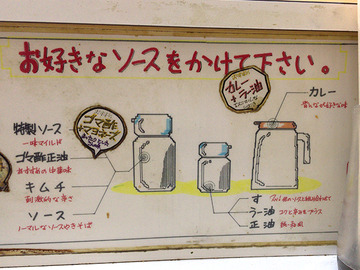 お好きなソースをかけて下さい。
カレー
+
ラー油
ゴマ酢
+
マヨネーズ
特製ソース
一味マイルド
ゴマ酢正油
おすすめの中華味
キムチ
刺激的な辛さ
ソース
ノーマルなソースやきそば
カレー
皆んなが好きな味
す
ラー油
コクと辛みをプラス
正油